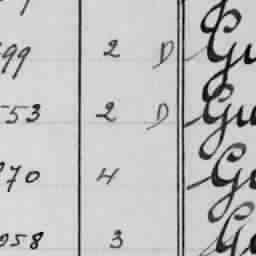 99 2 D Gu
53 2 D Gu
70 4 Go
958 3 Go